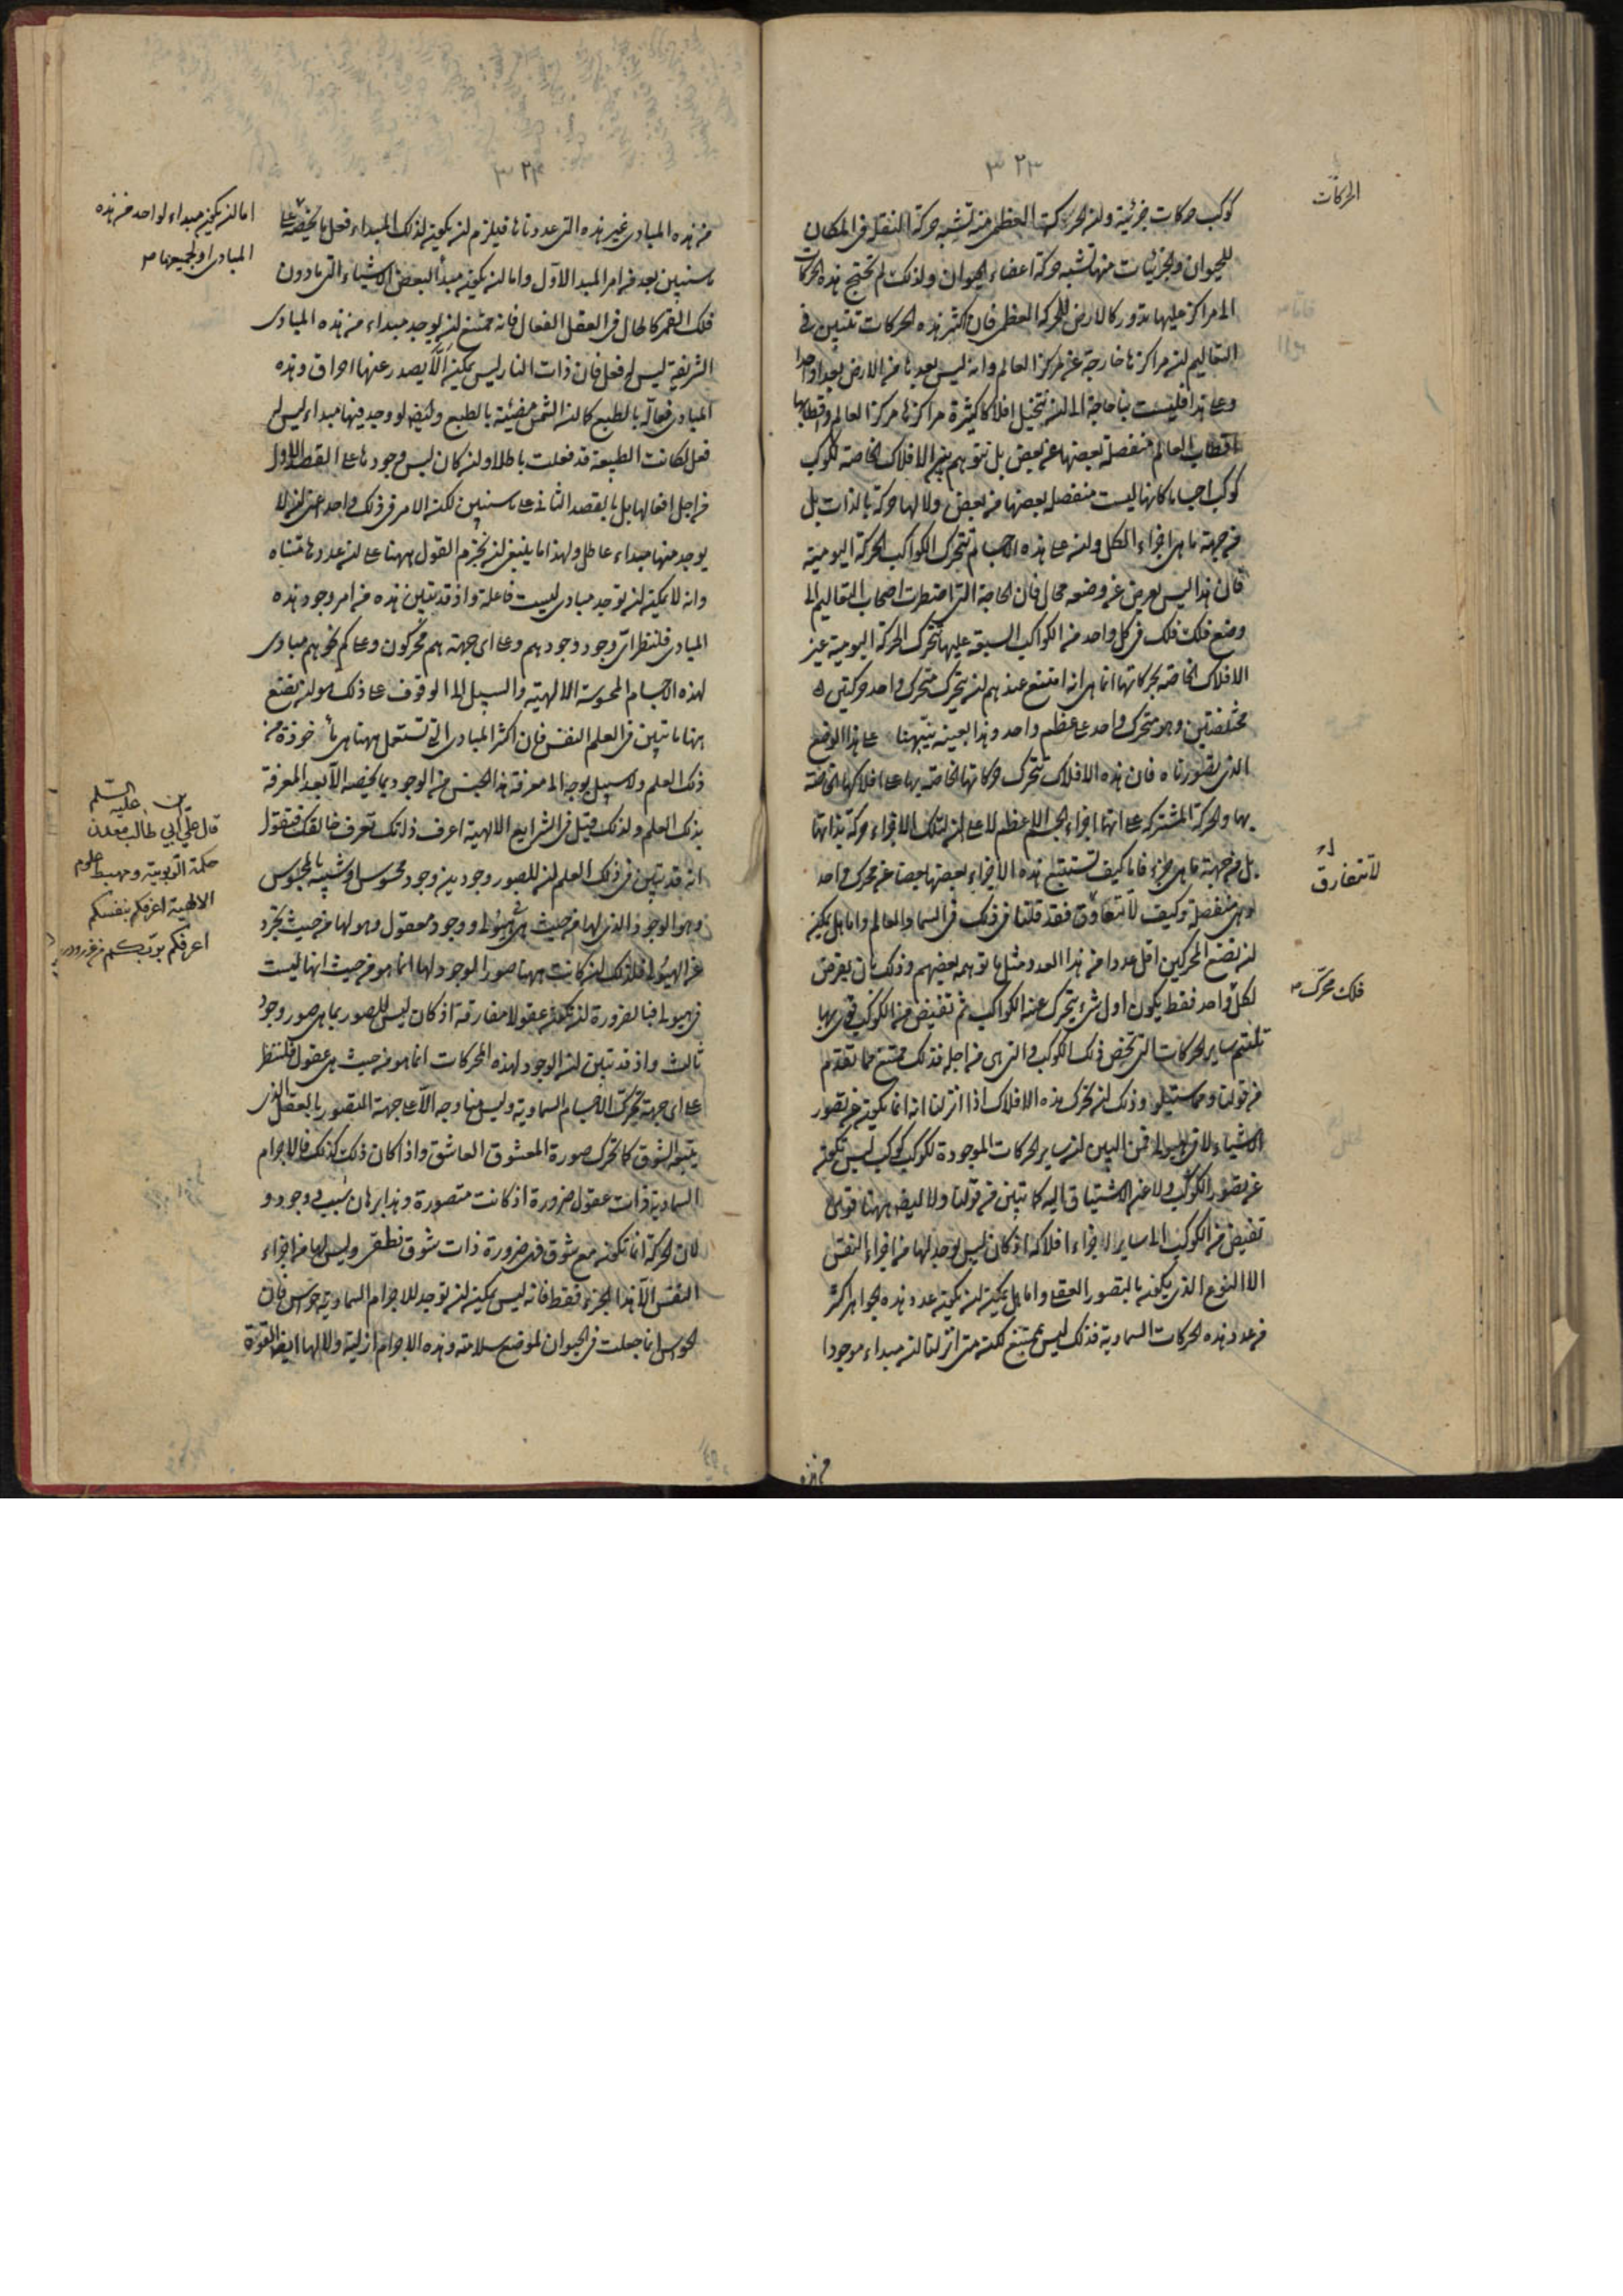 ٣٢٣
كوكب حركات جزئية وان الحركة العظمى منه تشبه حركة النقلة فى المكان
للحيوان والجزئيات منها تشبه حركة اعضاء الحيوان ولذلك لم تحتج هذه الحركات
الى مراكز عليها تدور كالارض للحركة العظمى فان اكثر هذه الحركات تتبين فى
التعاليم ان مراكزها خارجة عن مركز العالم وانه ليس بعدها من الارض بعدا واحدا
وعلى هذا فليست بنا حاجة الى ان نتخيل افلاكا كثيرة مراكزها مركز العالم واقطابها
اقطاب العالم منفصلة بعضها عن بعض بل نتوهم بين الافلاك الخاصة لكوكب
كوكب اجساما كانها ليست منفصلة بعضها من بعض ولا لها حركة بالذات بل
من جهة ما هى اجزاء الكل وان على هذه الاجسام تتحرك الكواكب الحركة اليومية
فان هذا ليس يعرض عن وضعه محال فان الحاجة التى اضطرت اصحاب التعاليم الى
وضع فلك فلك فى كل واحد من الكواكب السبعة عليها تتحرك الحركة اليومية غير
الافلاك الخاصة بحركاتها انما هى انه امتنع عندهم ان يتحرك متحرك واحد حركتين
مختلفتين وهو متحرك واحد على عظم واحد وهذا بعينه يتهيأ على هذا الوضع
الذى تصورناه فان هذه الافلاك تتحرك حركاتها الخاصة بها على افلاكها الخاصة
بها والحركة المشتركة على انها اجزاء الجسم الاعظم لا على ان لتلك الاجزاء حركة بذاتها
بل من جهة ما هى جزء فاما كيف تستتبع هذه الاجزاء بعضها بعضا عن محرك واحد
وهى منفصلة وكيف لا تتعاوق فقد قلنا فى ذلك فى السماء والعالم واما هل يمكن
ان نضع المحركين اقل عددا من هذا العدد مثل ما توهمه بعضهم وذلك بان يفرض
لكل واحد فقط يكون اول شىء يتحرك عنه الكواكب ثم تفيض من الكوكب قوى بها
تلتئم ساير الحركات التى تخص ذلك الكوكب والتى هى من اجله فذلك ممتنع مما تقدم
من قولنا ومما سنقوله وذلك ان تحرك هذه الافلاك اذا انزلنا انه انما يكون عن تصور
الاشياء لا فى هيولى فمن البين ان ساير الحركات الموجودة لكوكب كوكب ليس تكون
عن تصور الكوكب ولا عن الاشتياق اليه كما تبين من قولنا ولا ايضا ههنا قوى
تفيض من الكوكب الى ساير اجزاء افلاكه اذ كان ليس يوجد لها من اجزاء النفس
الا النوع الذى يكون بالتصور العقلى واما هل يمكن ان يكون عدد هذه الجواهر اكثر
من عدد هذه الحركات السماوية فذلك ليس بممتنع لكنه متى انزلنا ان مبداء موجودا
الحركات
لا تتفارق
فلك محرك
٣٢٤
من هذه المبادى غير هذه التى عددناها فيلزم ان يكون لذلك المبداء فعل ما يخصه على
ما سنبين بعد من امر المبدا الاول واما ان يكون مبدأ لبعض الاشياء التى ما دون
فلك القمر كالحال فى العقل الفعال فانه ممتنع ان يوجد مبداء من هذه المبادى
الشريفة ليس له فعل فان ذات النار ليس يمكن الا يصدر عنها احراق وهذه
المبادى فعالة بالطبع كما ان الشمس مضيئة بالطبع وايضا لو وجد فيها مبداء ليس له
فعل لكانت الطبيعة قد فعلت باطلا وان كان ليس وجودها على القصد الاول
من اجل افعالها بل بالقصد الثانى على ما سنبين لكن الامر فى ذلك واحد اعنى ان لا
يوجد منها مبداء عاطل ولهذا ما ينبغى ان نجزم القول ههنا على ان عددها متناه
وانه لا يمكن ان توجد مبادى ليست فاعلة واذ قد تبين هذه من امر وجود هذه
المبادى فلننظر اى وجود وجودهم وعلى اى جهة هم محركون وعلى كم نحو هم مبادى
لهذه الاجسام المحسوسة الالهية والسبيل الى الوقوف على ذلك هو ان نضع
ههنا ما تبين فى العلم النفس فان اكثر المبادى التى تستعمل ههنا هى مأخوذة من
ذلك العلم ولا سبيل بوجه الى معرفة هذا الجنس من الوجود بما يخصه الا بعد المعرفة
بذلك العلم ولذلك قيل فى الشرايع الالهية اعرف ذاتك تعرف خالقك فنقول
انه قد تبين فى ذلك العلم ان للصور وجودين وجود محسوس او شبيه بالمحسوس
وهو الوجود الذى لها من حيث هى فى هيولى ووجود معقول وهو لها من حيث تجرد
عن الهيولى فلذلك ان كانت ههنا صور الوجود لها انما هو من حيث انها ليست
فى هيولى فبالضرورة ان تكون عقولا مفارقة اذ كان ليس للصور بما هى صور وجود
ثالث واذ قد تبين ان الوجود لهذه المحركات انما هو من حيث هى عقول فلننظر
على اى جهة تحرك الاجسام السماوية وليس هنا وجه الا على جهة التصور بالعقل الذى
يتبعه الشوق كما تحرك صورة المعشوق العاشق واذا كان ذلك كذلك فالاجرام
السماوية ذات عقول ضرورة اذ كانت متصورة وهذا برهان سبب ووجود و
لان الحركة انما تكون مع شوق فهى ضرورة ذات شوق نطقى وليس لها من اجزاء
النفس الا هذا الجزء فقط فانه ليس يمكن ان توجد للاجرام السماوية حواس فان
الحواس انما جعلت فى الحيوان لموضع سلامته وهذه الاجرام ازلية ولا لها ايضا القوة
اما ان يكون مبداء لواحد من هذه
المبادى او لجميعها
قال على بن ابى طالب عليه السلم معدن
حكمة الربوبية ومهبط علوم
الالهية اعرفكم بنفسكم
اعرفكم بربكم